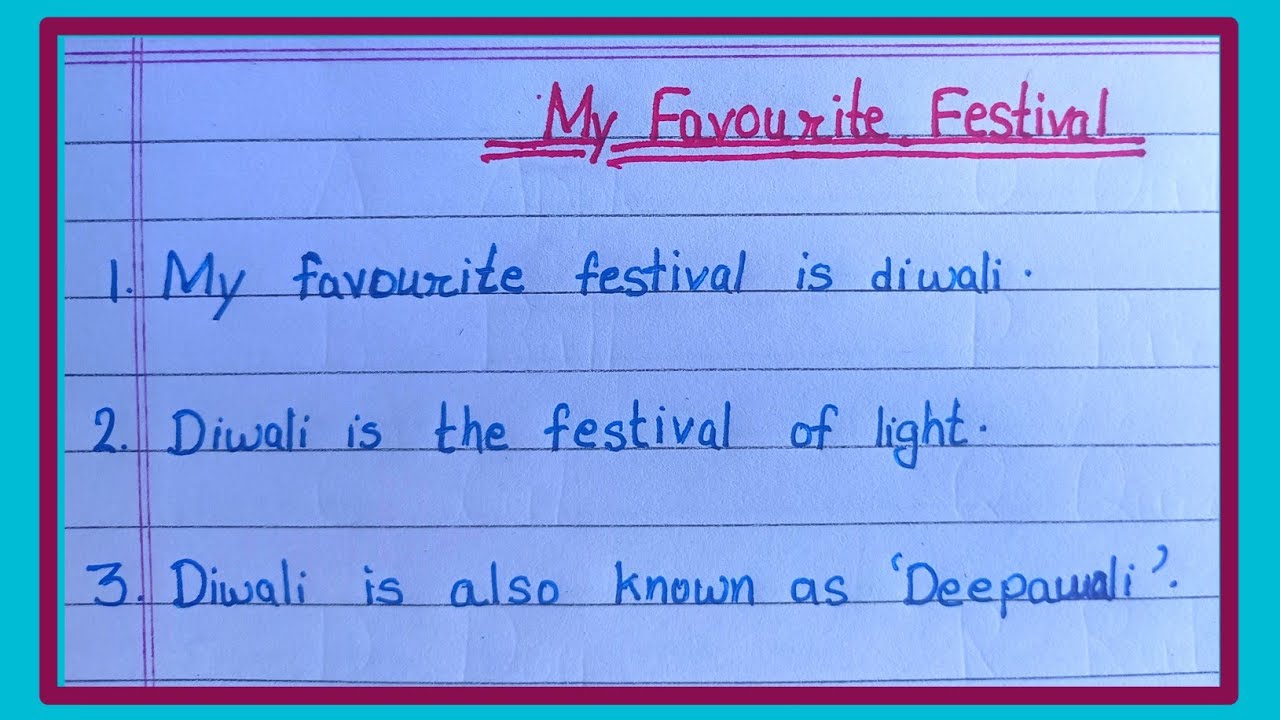 My Favourite Festival
1. My favourite festival is diwali.
2. Diwali is the festival of light.
3. Diwali is also known as 'Deepawali'.